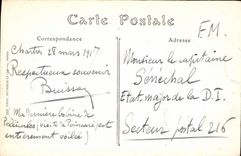 Carte Postale
Correspondance
Adresse
F.M.
Chartres 28 mars 1917
Respectueux souvenir
Buisson
Ma dernière bobine de
(visite de Poincaré) est
entièrement voilée !
Monsieur le capitaine
Sénéchal
Etat major de la D.I.
Secteur postal 216